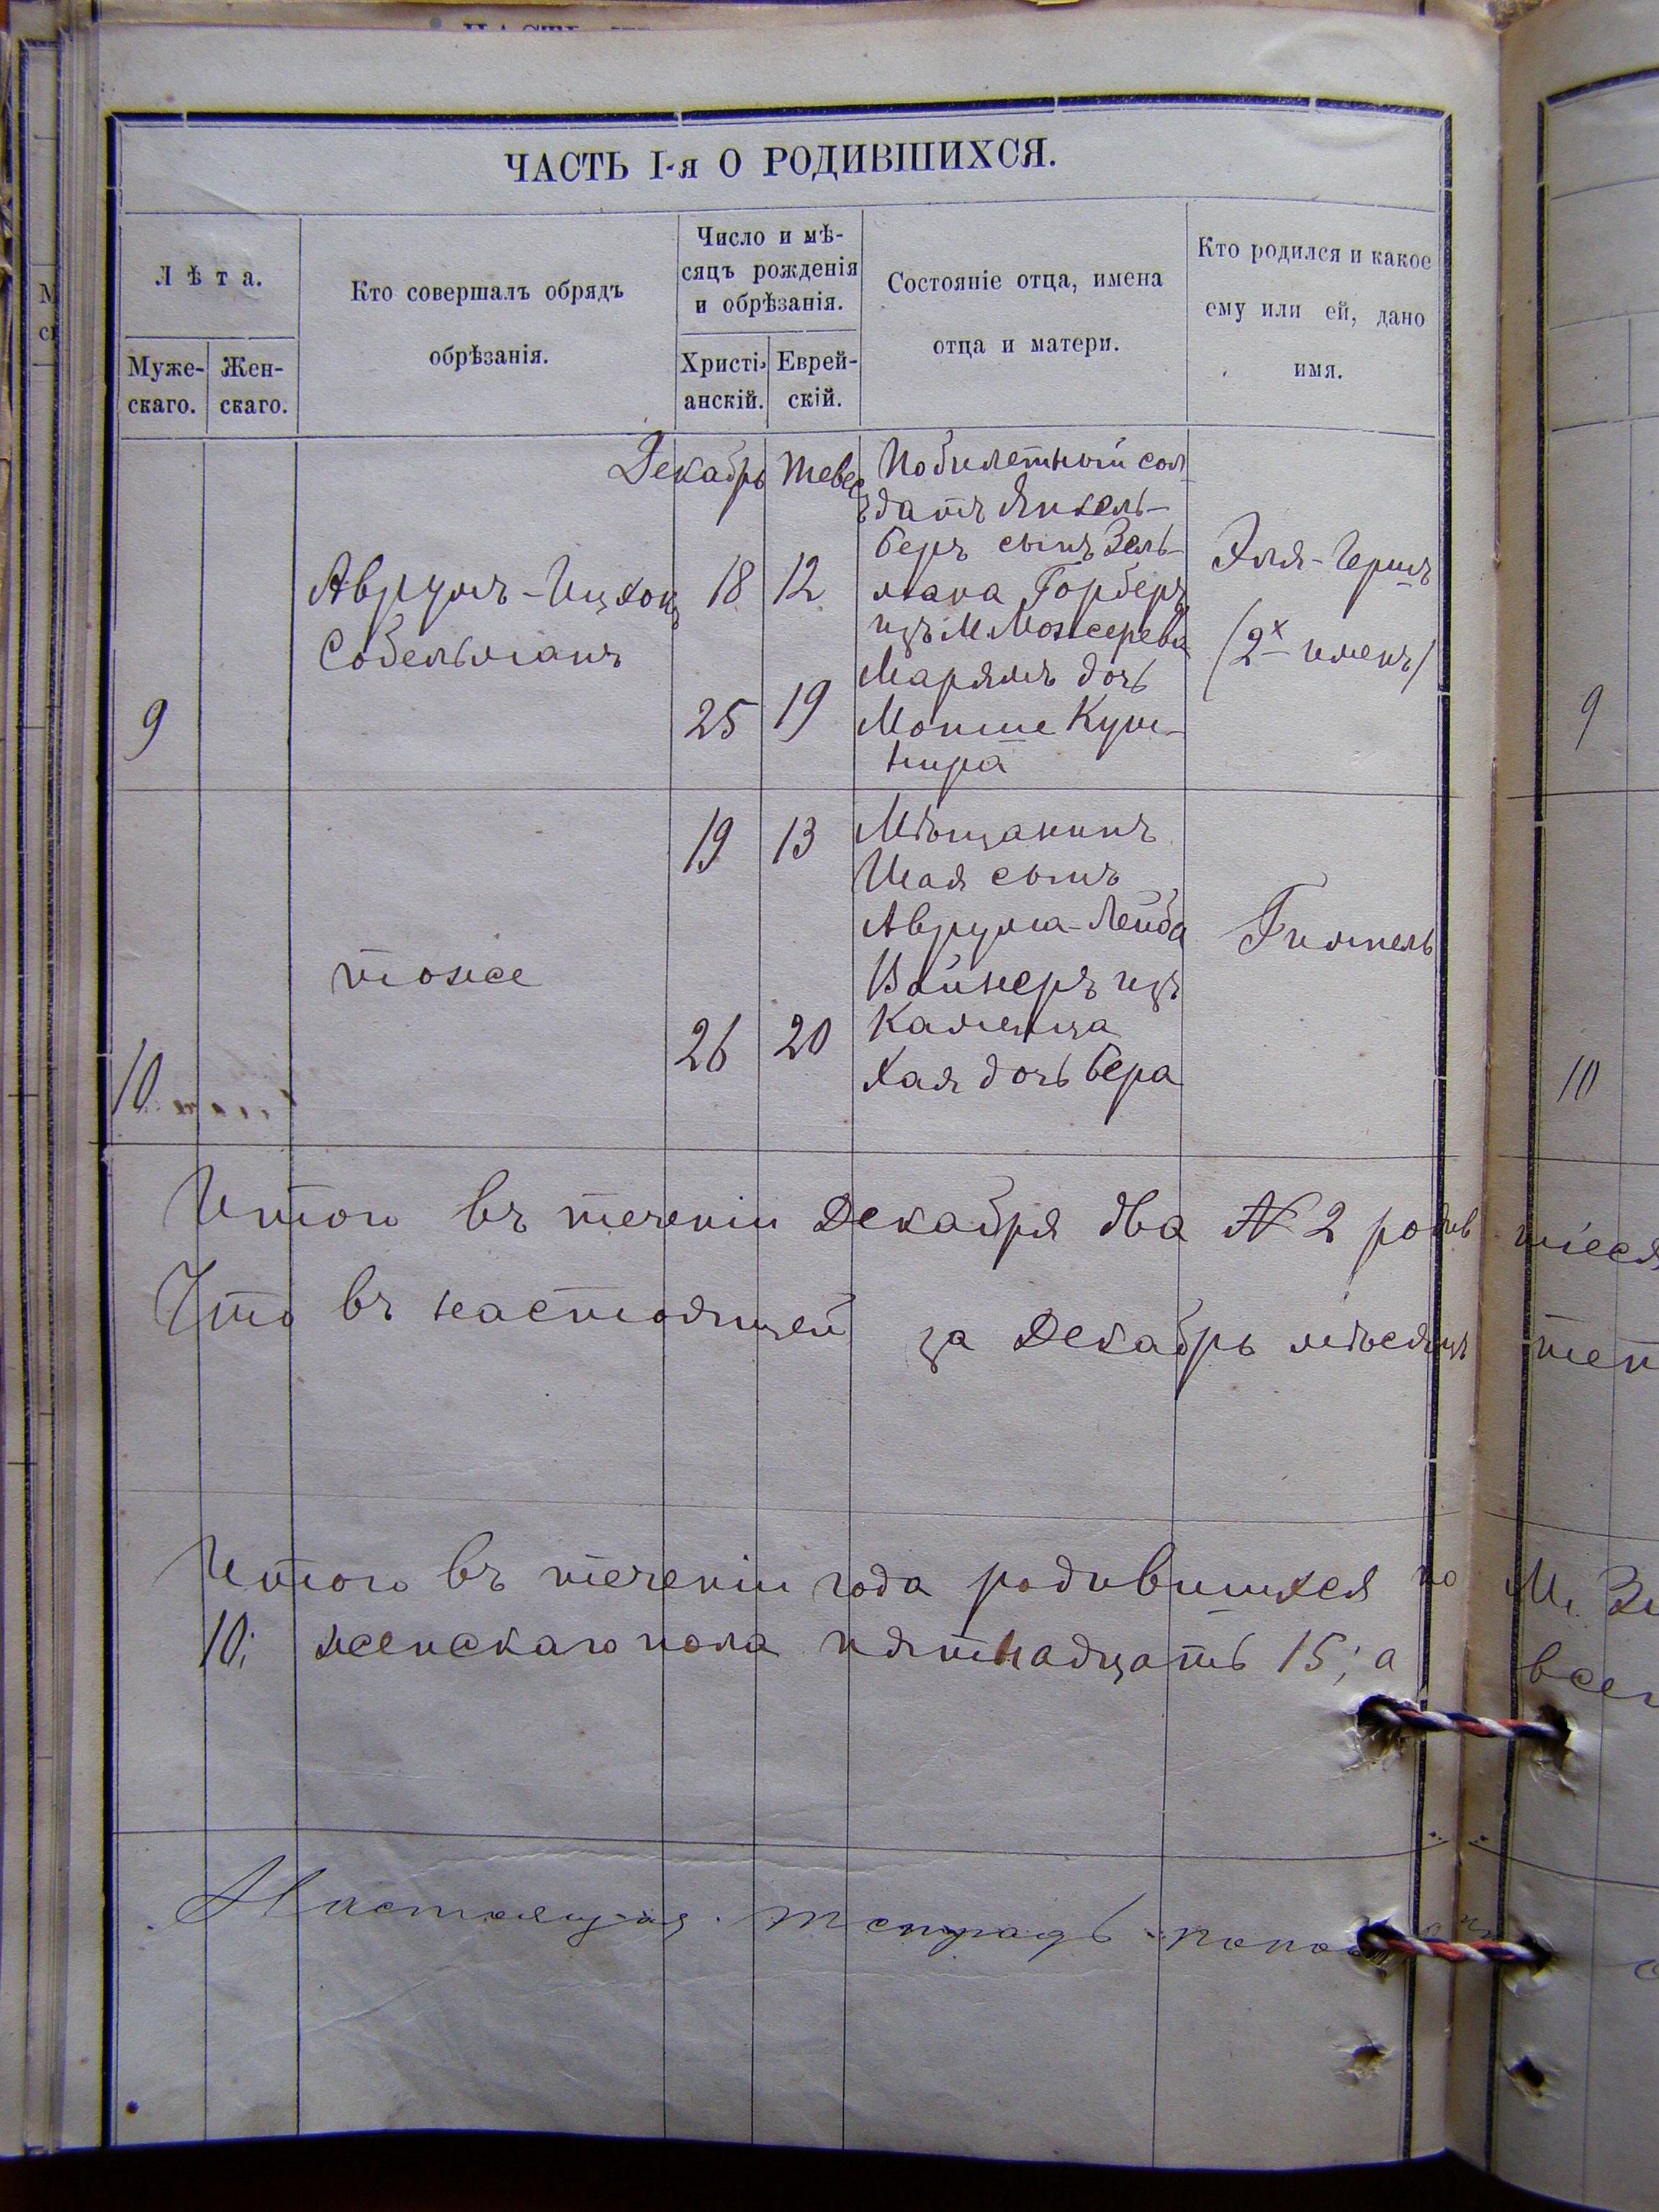 ЧАСТЬ I-я О РОДИВШИХСЯ.
Лѣта.
Муже-
скаго.
Жен-
скаго.
Кто совершалъ обрядъ
обрѣзанія.
Число и мѣ-
сяцъ рожденія
и обрѣзанія.
Христі-
анскій.
Еврей-
скій.
Состояніе отца, имена
отца и матери.
Кто родился и какое
ему или ей, дано
имя.
9
Аврумъ-Ицхокъ
Собельманъ
Декабрь
18
25
Тевесъ
12
19
Побилетный сол
датъ Янкель-
беръ сынъ Зель-
мана Горберъ
изъ М
Марямъ дочь
Мошше Куш-
нира
Эля-Гершъ
(2х именъ)
9
10
тоже
19
26
13
20
Мѣщанинъ
Шая сынъ
Аврума-Лейба
Вайнеръ изъ
Каменца
Хая дочь Бера
Гимпель
10
Итого въ теченіи Декабря два № 2 родив шіеся
Что въ настоящей за Декабрь мѣсяцъ
Итого въ теченіи года родившихся по М.
10; женскаго пола пятнадцать 15; а
Настоящая тетрадь